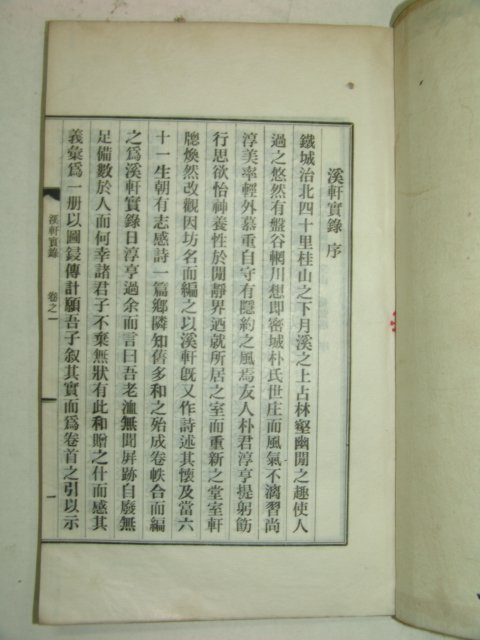 溪軒實錄序
鐵城治北四十里桂山之下月溪之上占林壑幽閒之趣使人
過之悠然有盤谷輞川想卽密城朴氏世庄而風氣不漓習尙
淳美率輕外慕重自守有隱約之風焉友人朴君淳亨提躬飭
行思欲怡神養性於閒靜界迺就所居之室而重新之堂室軒
牕煥然改觀因坊名而編之以溪軒旣又作詩述其懷及當六
十一生朝有志感詩一篇鄕隣知舊多和之殆成卷帙合而編
之爲溪軒實錄日淳亨過余而言曰吾老洫無聞屛跡自廢無
足備數於人而何幸諸君子不棄無狀有此和贈之什而感其
義彙爲一冊以圖鋟傳計願吾子敍其實而爲卷首之引以示
溪軒實錄 卷之一 一